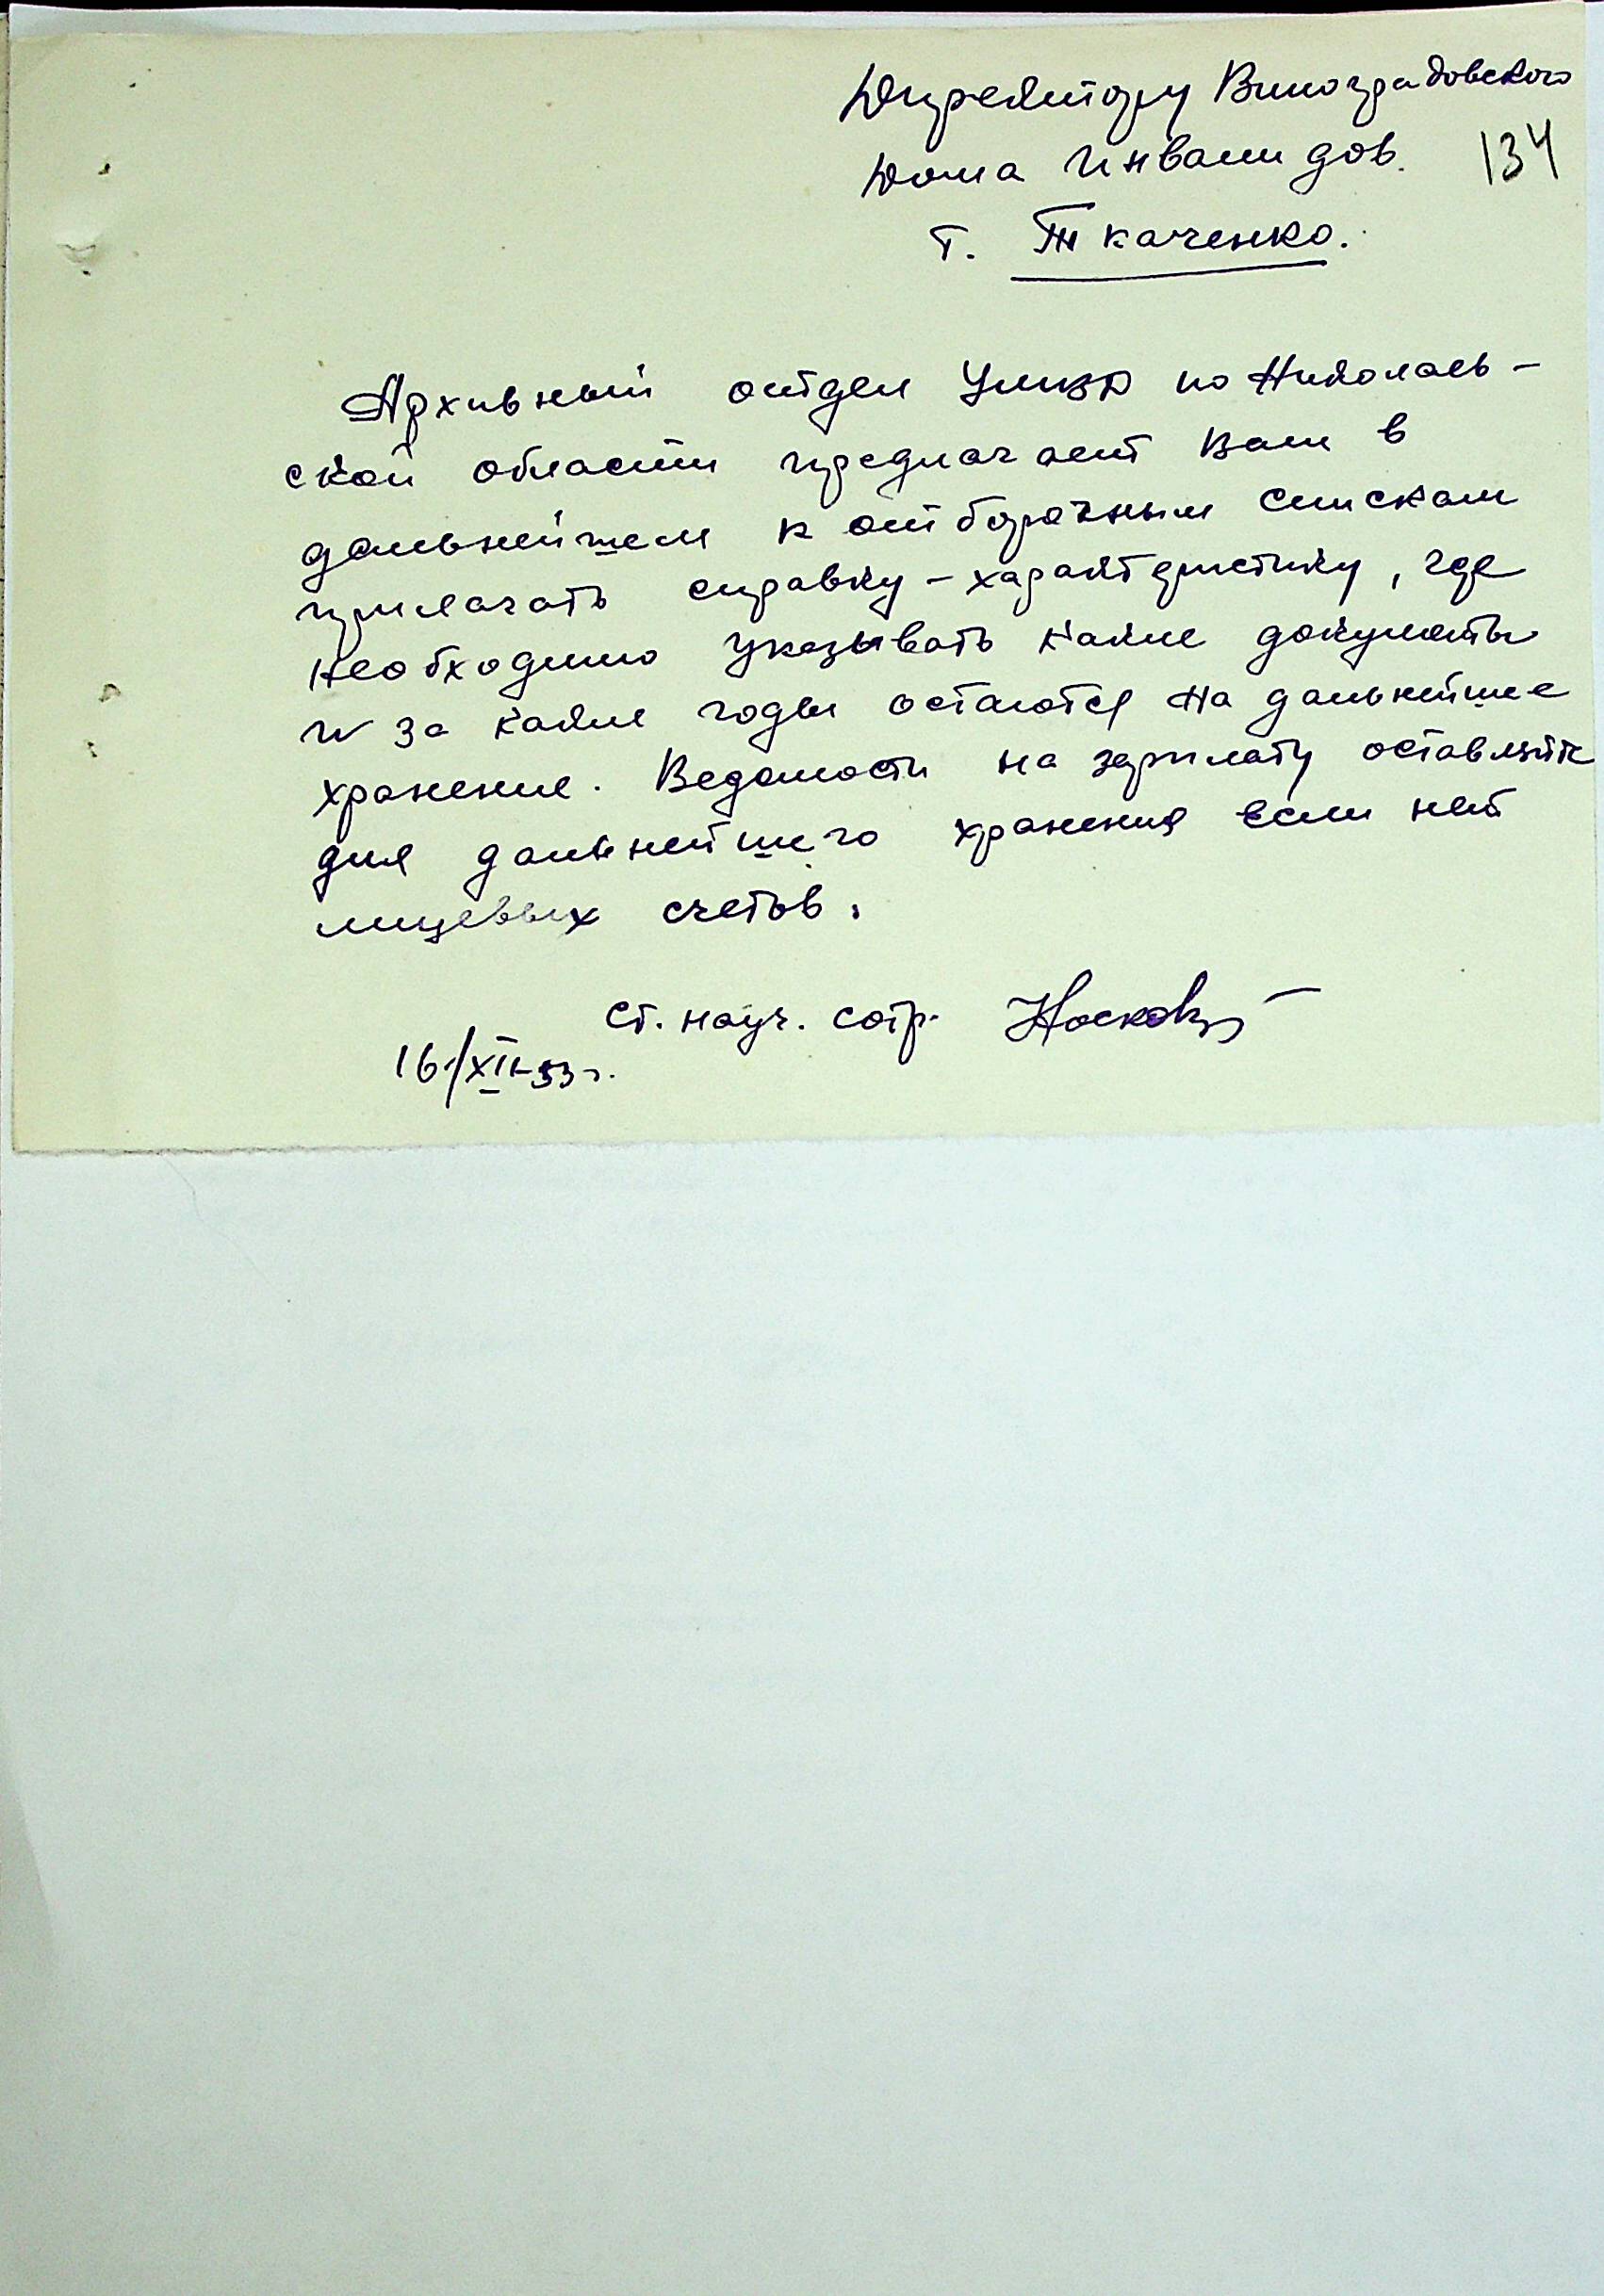 Директору Виноградовского
дома инвалидов. 134
т. Ткаченко.
Архивный отдел УМВД по Николаев-
ской области предлагает Вам в
дальнейшем к отборочным спискам
прилагать справку-характеристику, где
необходимо указывать какие документы
и за какие годы остаются на дальнейшее
хранение. Ведомости на зарплату оставляйте
для дальнейшего хранения если нет
лицевых счетов.
Ст. науч. сотр.
16/XII-53 г.